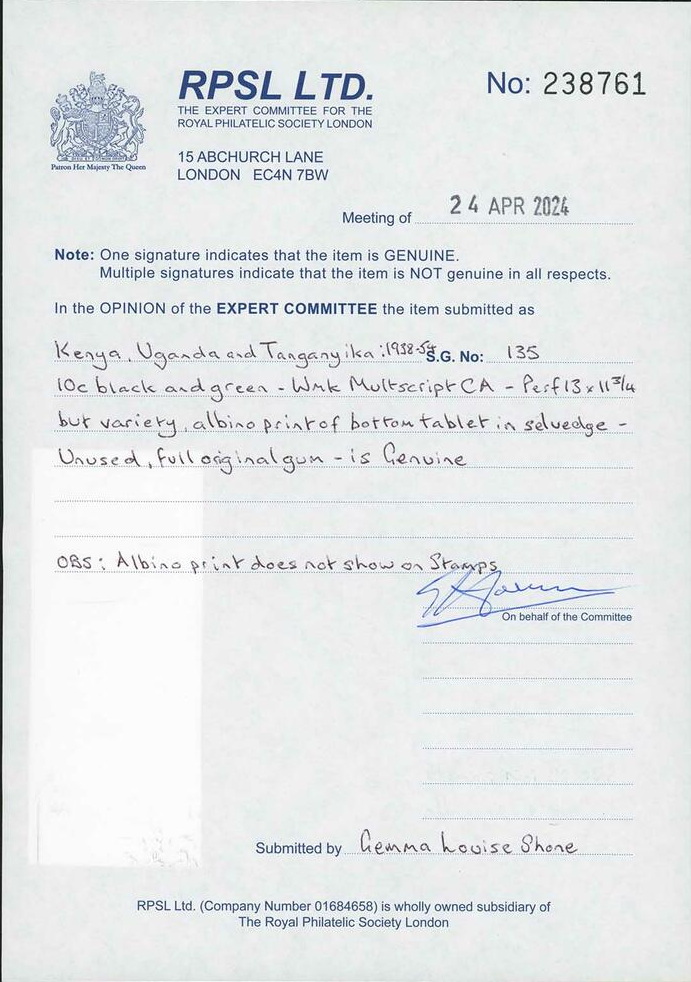 RPSL LTD.
THE EXPERT COMMITTEE FOR THE
ROYAL PHILATELIC SOCIETY LONDON
No: 238761
Patron Her Majesty The Queen
15 ABCHURCH LANE
LONDON EC4N 7BW
Meeting of 24 APR 2024
Note: One signature indicates that the item is GENUINE.
Multiple signatures indicate that the item is NOT genuine in all respects.
In the OPINION of the EXPERT COMMITTEE the item submitted as
Kenya, Uganda and Tanganyika: 1938-54 S.G. No: 135
10c black and green - Wmk Mult script CA - Perf 13 x 11 3/4
but variety, albino print of bottom tablet in selvedge -
Unused, full original gum - is Genuine
OBS: Albino print does not show on Stamps
On behalf of the Committee
Submitted by Gemma Louise Shone
RPSL Ltd. (Company Number 01684658) is wholly owned subsidiary of
The Royal Philatelic Society London